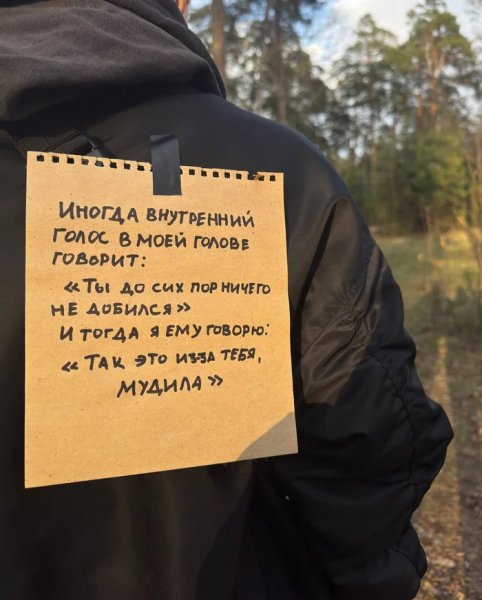 Иногда внутренний
голос в моей голове
говорит:
«Ты до сих пор ничего
не добился»
И тогда я ему говорю:
«Так это из-за тебя,
мудила»